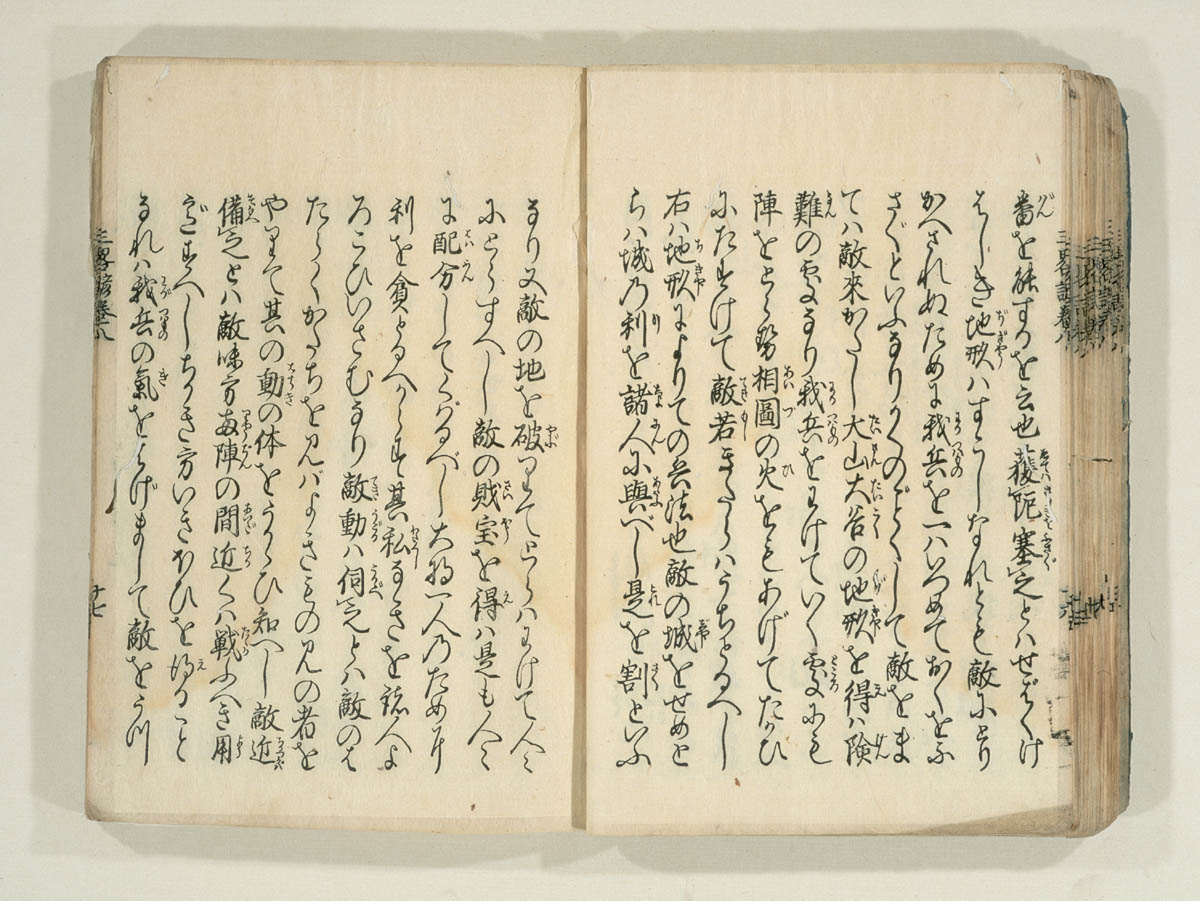 番を能するを云也蔽扼塞之とハせばくけ
はしき地形ハすこしなれとも敵にとり
かへされぬために我兵を一ハいつめておくをふ
さぐといふなりかくのごとくして敵をま
てハ敵來かたし大山大谷の地形を得ハ険
難の處なり我兵をわけていく處にも
陣をとら勢相圖の火をともあげてたかひ
にたすけて敵若きたらハうちとるへし
右ハ地形によりての兵法也敵の城をせめと
らハ城乃利を諸人に與べし是を割といふ
なり又敵の地を破りてとらハわけて人々
にとらすへし敵の財宝を得ハ是も人々
に配分してとらすべし大将一人乃ため
利を貪とるへからす其私なきを諸人よ
ろこひいさむなり敵動ハ伺之とハ敵のは
たらくかたちを見バよきものみの者を
やりて其の動の体をうかゝひ知へし敵近
備之とハ敵味方両陣の間近くハ戦ふへき用
意すへしちかき方いきおひを得ること
なれハ我兵の氣をはげまして敵をうつ
三畧諺巻八
十七